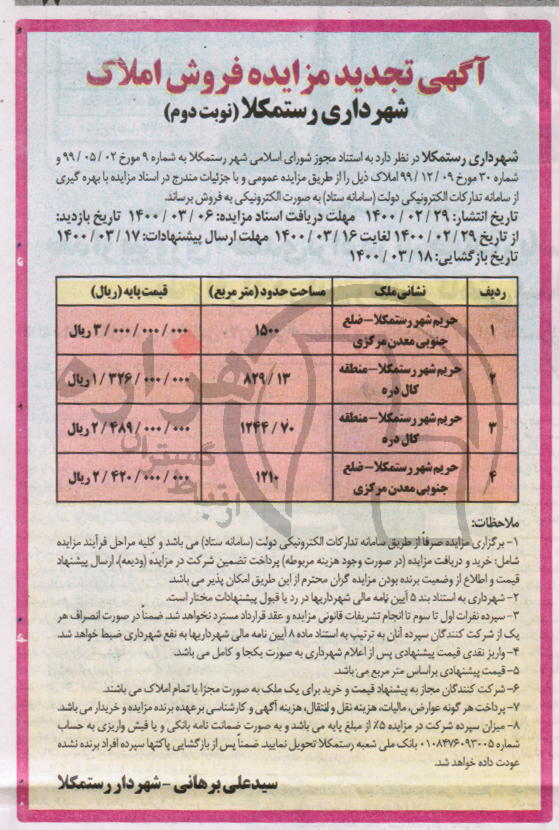 آگهی تجدید مزایده فروش املاک
شهرداری رستمکلا (نوبت دوم)
شهرداری رستمکلا در نظر دارد به استناد مجوز شورای اسلامی شهر رستمکلا به شماره ۹ مورخ ۰۲ / ۰۵ / ۹۹ و
شماره ۳۰ مورخ ۰۹ / ۱۲ / ۹۹ املاک ذیل را از طریق مزایده عمومی و با جزئیات مندرج در اسناد مزایده با بهره گیری
از سامانه تدارکات الکترونیکی دولت (سامانه ستاد) به صورت الکترونیکی به فروش برساند.
تاریخ انتشار: ۲۹ / ۰۲ / ۱۴۰۰ مهلت دریافت اسناد مزایده: ۰۶ / ۰۳ / ۱۴۰۰ تاریخ بازدید:
از تاریخ ۲۹ / ۰۲ / ۱۴۰۰ لغایت ۱۶ / ۰۳ / ۱۴۰۰ مهلت ارسال پیشنهادات: ۱۷ / ۰۳ / ۱۴۰۰
تاریخ بازگشایی: ۱۸ / ۰۳ / ۱۴۰۰
ردیف نشانی ملک مساحت حدود (متر مربع) قیمت پایه (ریال)
۱ حریم شهر رستمکلا – ضلع جنوبی معدن مرکزی ۱۵۰۰ ۳ / ۰۰۰ / ۰۰۰ / ۰۰۰ ریال
۲ حریم شهر رستمکلا – منطقه کال دره ۸۲۹ / ۱۳ ۱ / ۳۲۶ / ۰۰۰ / ۰۰۰ ریال
۳ حریم شهر رستمکلا – منطقه کال دره ۱۲۴۴ / ۷۰ ۲ / ۴۸۹ / ۰۰۰ / ۰۰۰ ریال
۴ حریم شهر رستمکلا – ضلع جنوبی معدن مرکزی ۱۲۱۰ ۲ / ۴۲۰ / ۰۰۰ / ۰۰۰ ریال
هزاره
گستران
ارتباط
ملاحظات:
۱- برگزاری مزایده صرفاً از طریق سامانه تدارکات الکترونیکی دولت (سامانه ستاد) می باشد و کلیه مراحل فرآیند مزایده
شامل: خرید و دریافت مزایده (در صورت وجود هزینه مربوطه) پرداخت تضمین شرکت در مزایده (ودیعه)، ارسال پیشنهاد
قیمت و اطلاع از وضعیت برنده بودن مزایده گران محترم از این طریق امکان پذیر می باشد.
۲- شهرداری به استناد بند ۵ آیین نامه مالی شهرداریها در رد یا قبول پیشنهادات مختار است.
۳- سپرده نفرات اول تا سوم تا انجام تشریفات قانونی مزایده و عقد قرارداد مسترد نخواهد شد. ضمناً در صورت انصراف هر
یک از شرکت کنندگان سپرده آنان به ترتیب به استناد ماده ۸ آیین نامه مالی شهرداریها به نفع شهرداری ضبط خواهد شد.
۴- واریز نقدی قیمت پیشنهادی پس از اعلام شهرداری به صورت یکجا و کامل می باشد.
۵- قیمت پیشنهادی براساس متر مربع می باشد.
۶- شرکت کنندگان مجاز به پیشنهاد قیمت و خرید برای یک ملک به صورت مجزا یا تمام املاک می باشند.
۷- پرداخت هر گونه عوارض، مالیات، هزینه نقل و انتقال، هزینه آگهی و کارشناسی برعهده برنده مزایده و خریدار می باشد.
۸- میزان سپرده شرکت در مزایده ۵٪ از مبلغ پایه می باشد و به صورت ضمانت نامه بانکی و یا فیش واریزی به حساب
شماره ۰۱۰۸۴۷۶۰۹۳۰۰۵ بانک ملی شعبه رستمکلا تحویل نمایید. ضمناً پس از بازگشایی پاکتها سپرده افراد برنده نشده
عودت داده خواهد شد.
سیدعلی برهانی – شهردار رستمکلا